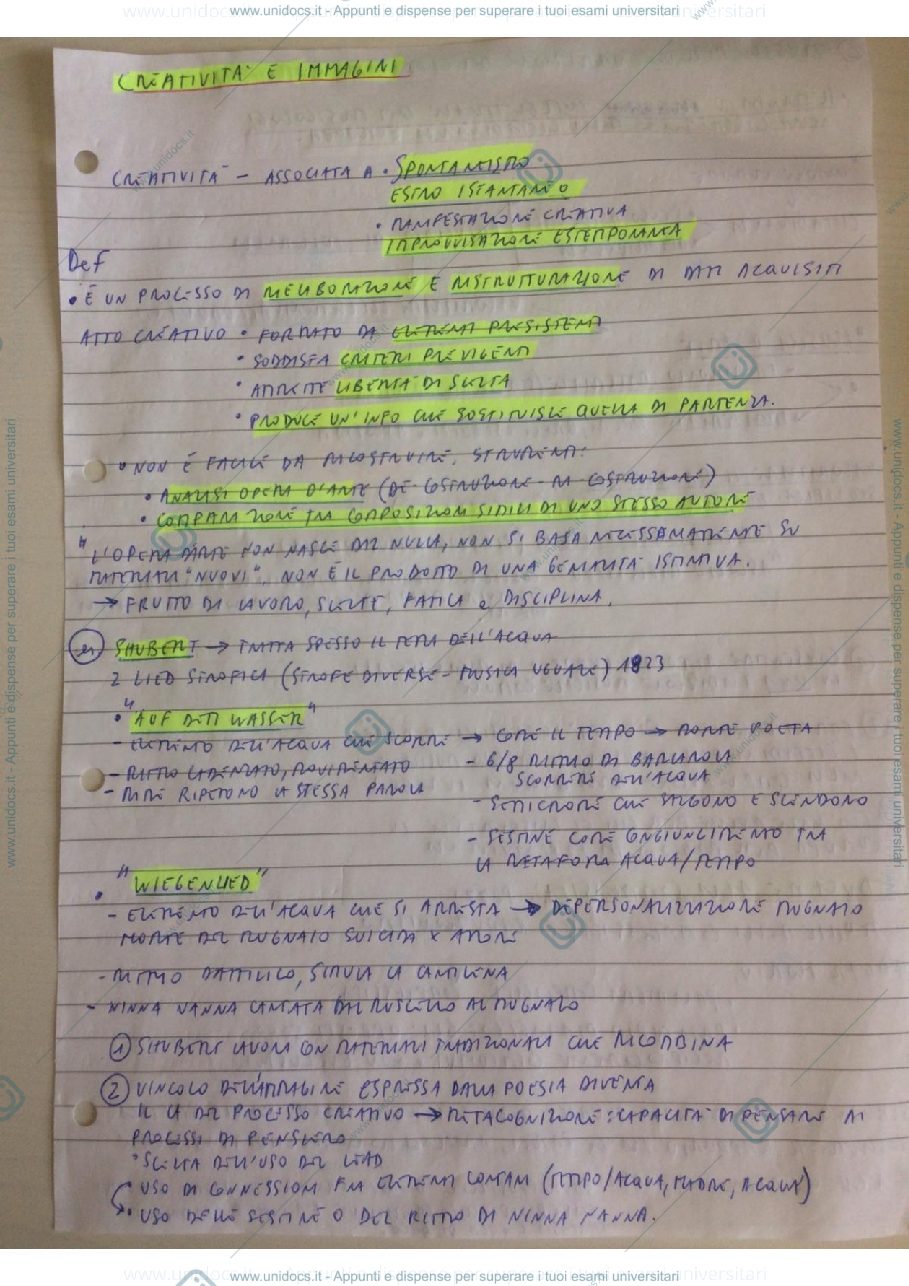 www.unidocs.it - Appunti e dispense per superare i tuoi esami universitari
CREATIVITA' E IMMAGINI
CREATIVITA' - ASSOCIATA A • SPONTANEISMO
ESTRO ISTANTANEO
• MANIFESTAZIONE CREATIVA
IMPROVVISAZIONE ESTEMPORANEA
Def
• È UN PROCESSO DI RIELABORAZIONE E RISTRUTTURAZIONE DI DATI ACQUISITI
ATTO CREATIVO • FORMATO DA ELEMENTI PRESISTENTI
• SODDISFA CRITERI PREVIGENTI
• AMMETTE LIBERTA' DI SCELTA
• PRODUCE UN'INFO CHE SOSTITUISCE QUELLA DI PARTENZA.
• NON È FACILE DA RICOSTRUIRE. STRUMENTI:
• ANALISI OPERA D'ARTE (DE-COSTRUZIONE - RI COSTRUZIONE)
• COMPARAZIONE TRA COMPOSIZIONI SIMILI DI UNO STESSO AUTORE
" L'OPERA D'ARTE NON NASCE DAL NULLA, NON SI BASA NECESSARIAMENTE SU
MATERIALI "NUOVI", NON È IL PRODOTTO DI UNA GENIALITA' ISTINTIVA.
→ FRUTTO DI LAVORO, SCELTE, FATICA e DISCIPLINA.
es SHUBERT → TRATTA SPESSO IL TEMA DELL'ACQUA
2 LIED STROFICA (STROFE DIVERSE - MUSICA UGUALE) 1823
• "AUF DEM WASSER"
- ELEMENTO DELL'ACQUA CHE SCORRE → COME IL TEMPO → MORTE POETA
- RITMO CADENZATO, MOVIMENTATO - 6/8 RITMO DI BARCAROLA
SCORRERE DELL'ACQUA
- RIME RIPETONO LA STESSA PAROLA
- SEMICROME CHE SALGONO E SCENDONO
- SESTINE COME CONGIUNGIMENTO TRA
LA METAFORA ACQUA/TEMPO
• "WIEGENLIED"
- ELEMENTO DELL'ACQUA CHE SI ARRESTA → DEPERSONALIZZAZIONE MUGNAIO
MORTE DEL MUGNAIO SUICIDA X AMORE
- RITMO DATTILICO, SIMULA LA CANTILENA
- NINNA NANNA CANTATA DAL RUSCELLO AL MUGNAIO
1 SHUBERT LAVORA CON MATERIALI TRADIZIONALI CHE RICOMBINA
2 VINCOLO DELL'IMMAGINE ESPRESSA DALLA POESIA DIVENTA
IL LA DEL PROCESSO CREATIVO → METACOGNIZIONE: CAPACITA' DI PENSARE AI
PROCESSI DI PENSIERO
• SCELTA DELL'USO DEL LIED
USO DI CONNESSIONI FRA ELEMENTI LONTANI (TEMPO/ACQUA, MADRE, ACQUA)
• USO DELLE SESTINE O DEL RITMO DI NINNA NANNA.
www.unidocs.it - Appunti e dispense per superare i tuoi esami universitari